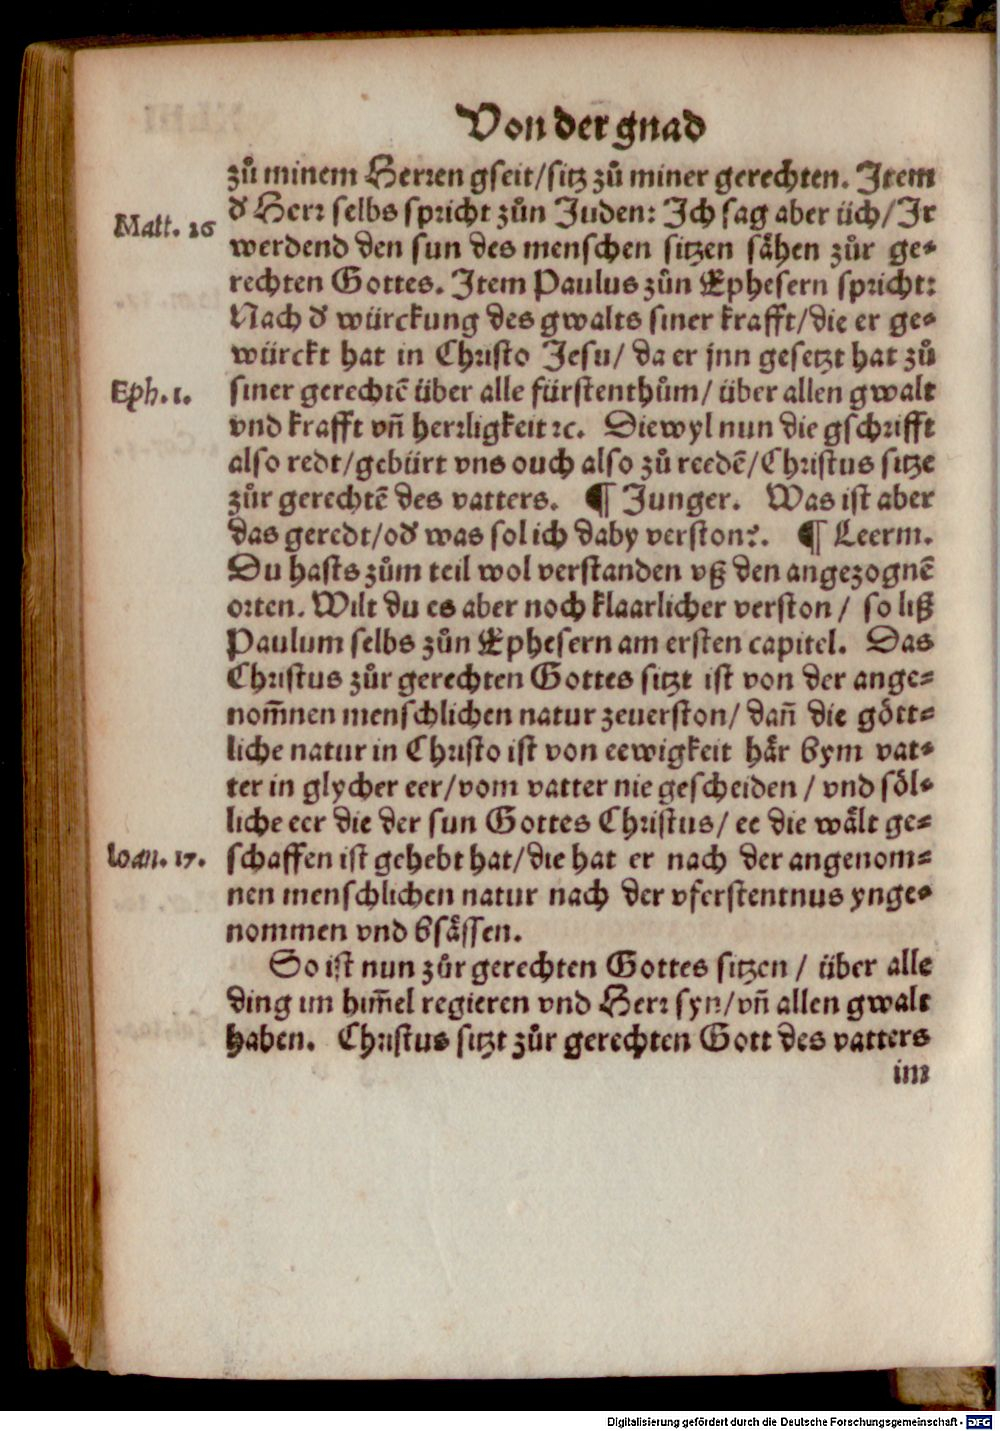 Von der gnad
zů minem Herren gseit/sitz zů miner gerechten. Item
Matt. 26
d' Herr selbs spricht zůn Juden: Ich sag aber üch/Ir
werdend den sun des menschen sitzen sähen zůr ge-
rechten Gottes. Item Paulus zůn Ephesern spricht:
Nach d' würckung des gwalts siner krafft/die er ge-
würckt hat in Christo Jesu/ da er jnn gesetzt hat zů
Eph. 1.
siner gerechtē über alle fürstenthům/ über allen gwalt
vnd krafft vñ herrligkeit ꝛc. Diewyl nun die gschrifft
also redt/gebürt vns ouch also zů reedē/Christus sitze
zůr gerechtē des vatters. ¶ Junger. Was ist aber
das geredt/od' was sol ich daby verston?. ¶ Leerm.
Du hasts zům teil wol verstanden vß den angezognē
orten. Wilt du es aber noch klaarlicher verston/ so liß
Paulum selbs zůn Ephesern am ersten capitel. Das
Christus zůr gerechten Gottes sitzt ist von der ange-
nom̄nen menschlichen natur zeuerston/ dañ die gött-
liche natur in Christo ist von eewigkeit här bym vat-
ter in glycher eer/vom vatter nie gescheiden/ vnd söl-
liche eer die der sun Gottes Christus/ ee die wält ge-
Ioan. 17.
schaffen ist gehebt hat/die hat er nach der angenom-
nen menschlichen natur nach der vferstentnus ynge-
nommen vnd bsässen.
So ist nun zůr gerechten Gottes sitzen/ über alle
ding im him̄el regieren vnd Herr syn/vñ allen gwalt
haben. Christus sitzt zůr gerechten Gott des vatters
im
Digitalisierung gefördert durch die Deutsche Forschungsgemeinschaft - DFG